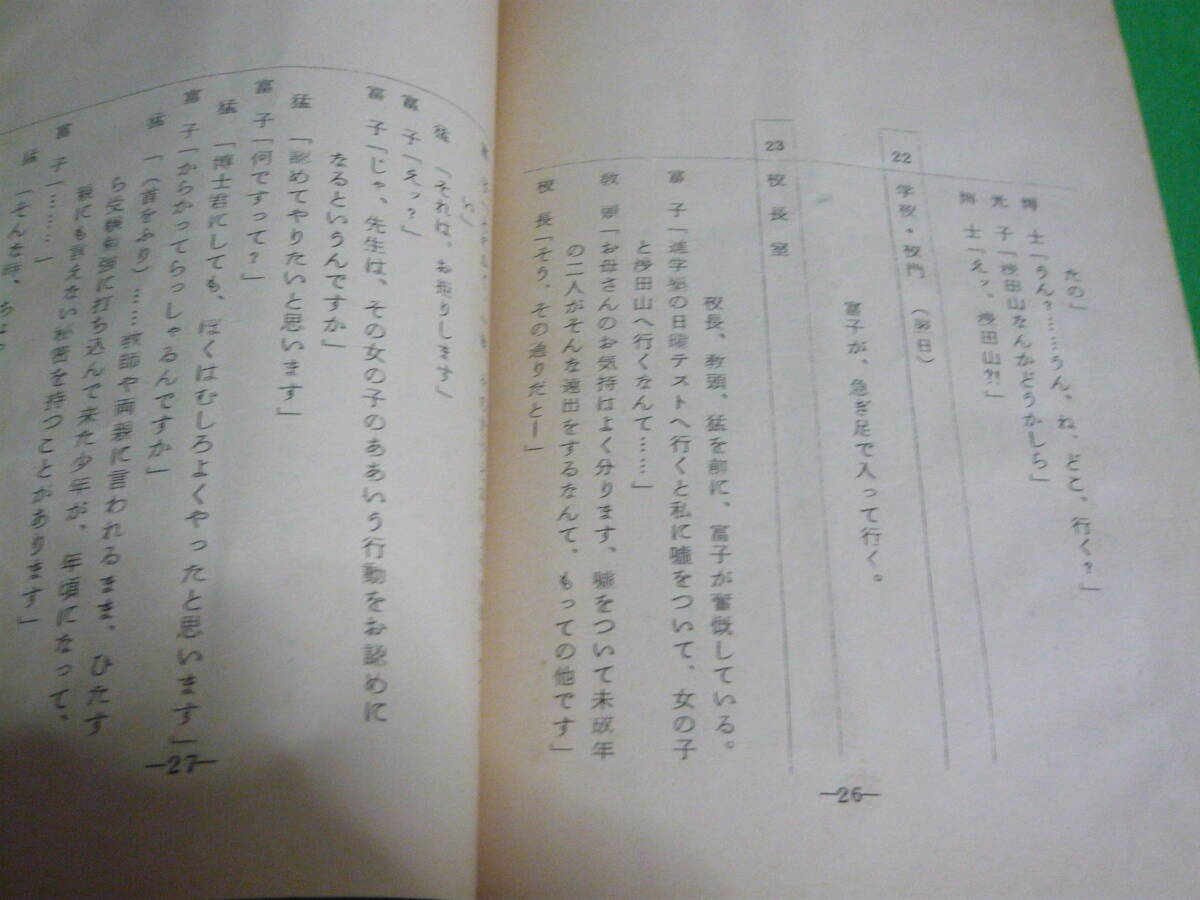 たの」
博 士「うん？……うん、ね、どこ、行く？」
光 子「桜田山なんかどうかしら」
博 士「えッ、桜田山?!」
22 学校・校門 (翌日)
富子が、急ぎ足で入って行く。
23 校 長 室
校長、教頭、猛を前に、富子が奮慨している。
富 子「進学塾の日曜テストへ行くと私に嘘をついて、女の子
と桜田山へ行くなんて……」
教 頭「お母さんのお気持はよく分ります、嘘をついて未成年
の二人がそんな遠出をするなんて、もっての他です」
校 長「そう、その通りだとー」
—26—
い」
猛 「それは、お断りします」
富 子「えッ？」
富 子「じゃ、先生は、その女の子のああいう行動をお認めに
なるというんですか」
猛 「認めてやりたいと思います」
富 子「何ですって？」
猛 「博士君にしても、ぼくはむしろよくやったと思います」
富 子「からかってらっしゃるんですか」
猛 「(首をふり)……教師や両親に言われるまま、ひたす
ら受験勉強に打ち込んで来た少年が、年頃になって、
親にも言えない秘密を持つことがあります」
富 子「………」
猛 「そんな時、
—27—